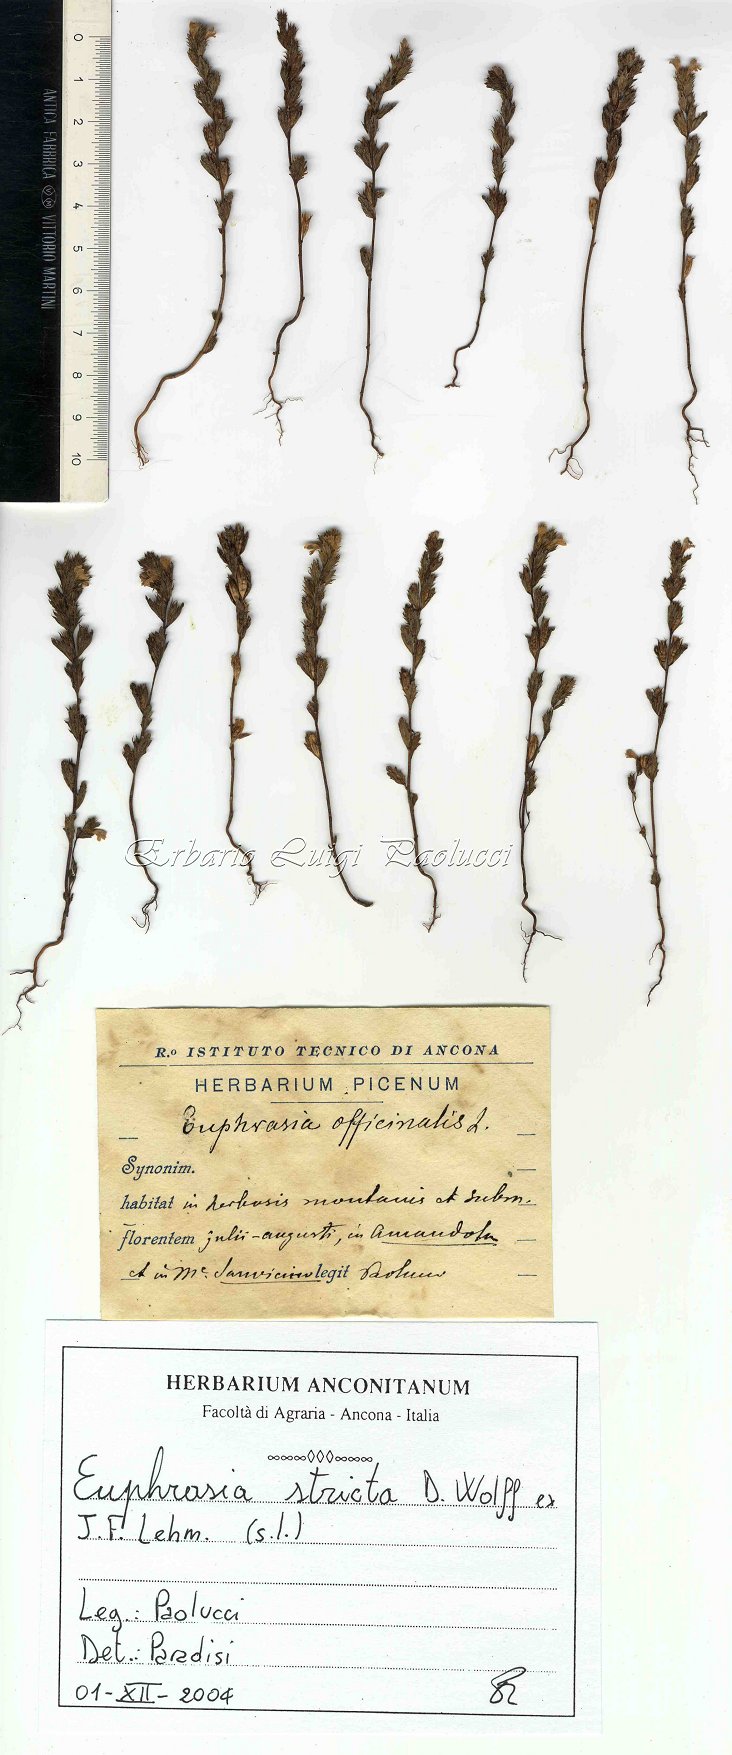 0
1
2
3
4
5
6
7
8
9
10
ANTICA FABBRICA VM VITTORIO MARTINI
Erbario Luigi Paolucci
R.º ISTITUTO TECNICO DI ANCONA
HERBARIUM PICENUM
Euphrasia officinalis L.
Synonim.
habitat in herbosis montanis et subm.
florentem julii-augusti, in Amandola
et in Mᵉ Sanvicino legit Paolucci
HERBARIUM ANCONITANUM
Facoltà di Agraria - Ancona - Italia
Euphrasia stricta D. Wolff ex
J.F. Lehm. (s.l.)
Leg.: Paolucci
Det.: Paradisi
01-XII-2004